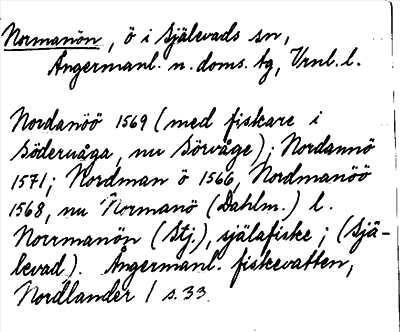 Normanön, ö i Själevads sn,
Ångermanl. n. doms. tg, Vrnl. l.
Nordanöö 1569 (med fiskare i
Söderuåga, nu Sörvåge); Nordannö
1571; Nordman ö 1566, Nordmanöö
1568, nu Normanö (Dahlm.) l.
Norrmanön (Stj.), själafiske; (Sjä-
levad). Ångermanl. fiskevatten,
Nordlander 1 s. 33.